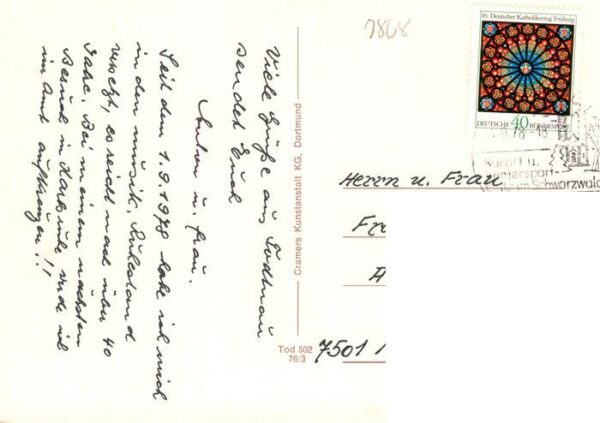 Viele Grüße aus Todtnau
sendet Euch
Anton u. Frau.
Seit dem 1.9.1978 habe ich mich
in den musik. Ruhestand
versetzt, es reicht nach über 40
Jahre. Bei meinem nächsten
Besuch in Karlsruhe werde ich
im Amt aufkreuzen!!
Cramers Kunstanstalt KG, Dortmund
Tod 502
76/3
7868
85. Deutscher Katholikentag Freiburg
DEUTSCHE BUNDESPOST
40
Kurort u.
Wintersport-
Schwarzwald
Herrn u. Frau
Fr
A
7501